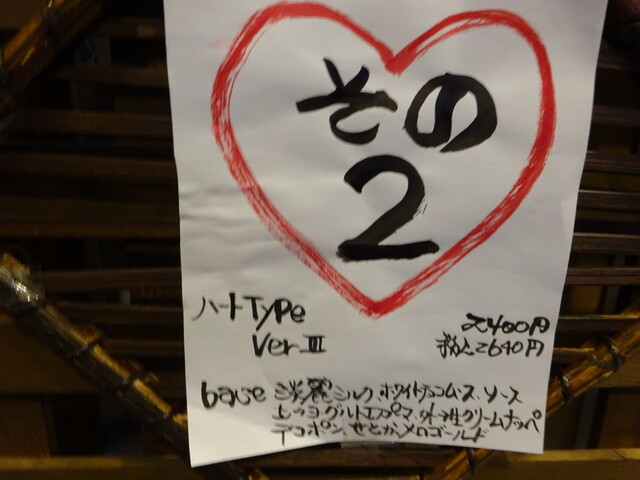 その
2
ハートType
Ver.III
2400円
税込2640円
base 淡麗ミルク ホワイトチョコムース ソース
ヨーグルトエスプーマ 生クリームナッペ
デコポン、せとか、メロゴールド